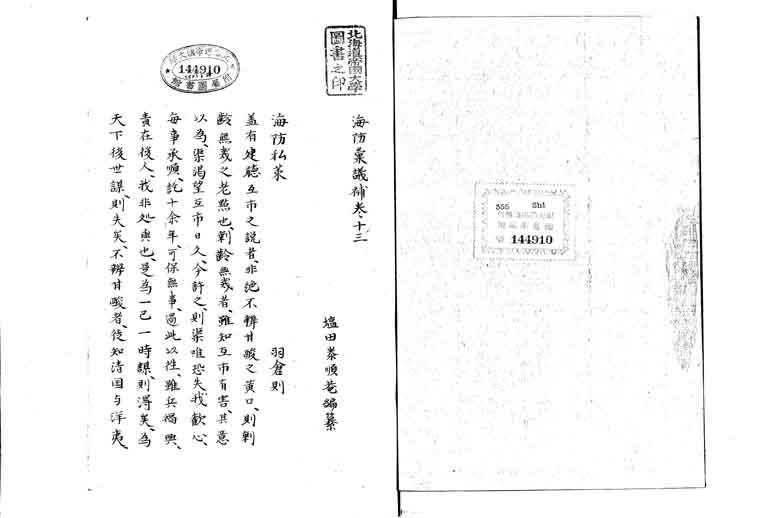 555
Sh1
144910
北海道帝國大學
圖書之印
144910
海防彙議補巻十三
塩田泰順菴編纂
海防私策
羽倉則
蓋有建聴互市之説者、非徒不辨甘酸之黄口、則剰
齢無幾之老㷔也、剰齢無幾者、雖知互市有害、其意
以為、渠渇望互市日久、今許之、則渠唯恐失我歓心、
毎事承順、説十余年、可保無事、過此以往、雖兵禍興、
責在後人、我非処与也、是為一己一時謀則得矣、為
天下後世謀、則失矣、不辨甘酸者、徒知清国与洋夷、